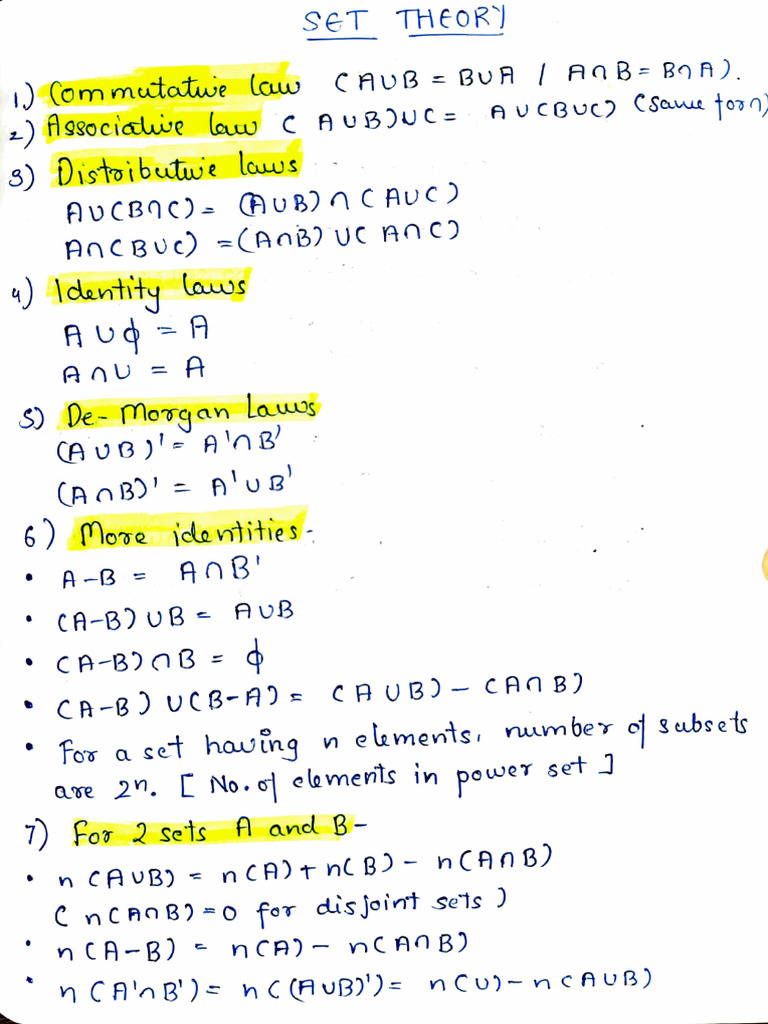 SET THEORY
1.) Commutative law (A∪B = B∪A / A∩B = B∩A).
2) Associative law (A∪B)∪C = A∪(B∪C) (same for ∩)
3) Distributive laws
A∪(B∩C) = (A∪B)∩(A∪C)
A∩(B∪C) = (A∩B)∪(A∩C)
4) Identity laws
A∪ϕ = A
A∩U = A
5) De-Morgan Laws
(A∪B)' = A'∩B'
(A∩B)' = A'∪B'
6) More identities-
• A-B = A∩B'
• (A-B)∪B = A∪B
• (A-B)∩B = ϕ
• (A-B)∪(B-A) = (A∪B)-(A∩B)
• For a set having n elements, number of subsets
are 2n. [No. of elements in power set]
7) For 2 sets A and B-
• n(A∪B) = n(A)+n(B)-n(A∩B)
(n(A∩B)=0 for disjoint sets)
• n(A-B) = n(A)-n(A∩B)
• n(A'∩B') = n((A∪B)') = n(U)-n(A∪B)